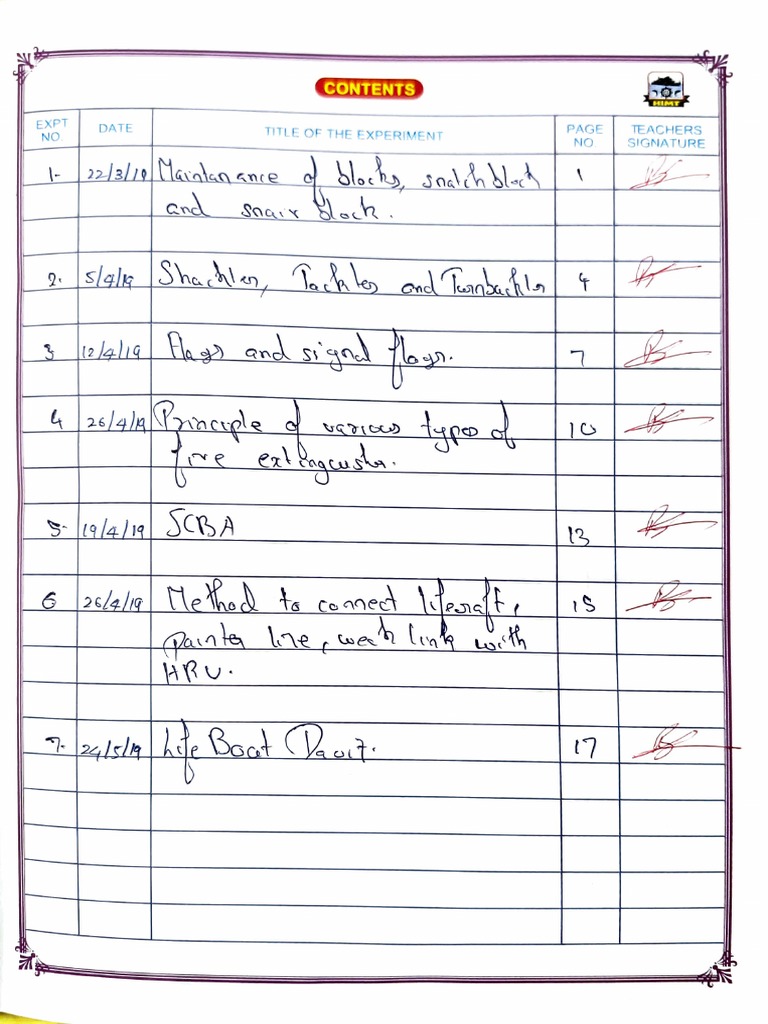 CONTENTS
HIMT
EXPT NO. DATE TITLE OF THE EXPERIMENT PAGE NO TEACHERS SIGNATURE
1- 22/3/19 Maintanance of blocks, snatch block 1
and snair block.
2. 5/4/19 Shackles, Tackles and Turnbackles 4
3 12/4/19 Flags and signal flags. 7
4 26/4/19 Principle of various types of 10
fire extingcusher.
5- 19/4/19 SCBA 13
6 26/4/19 Method to connect liferaft, 15
painter line, weak link with
HRU.
7- 24/5/19 Life Boat Davit. 17